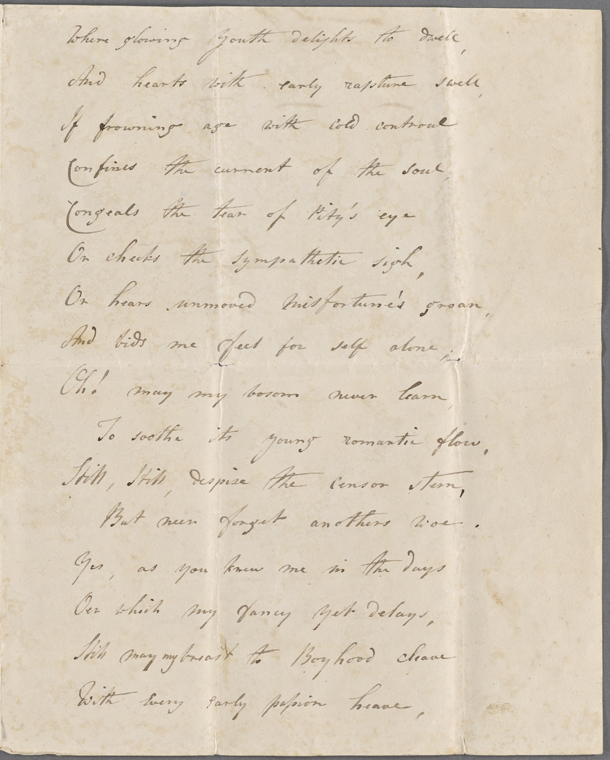 Where glowing Youth delights to dwell,
And hearts with early rapture swell,
If frowning age with cold controul
Confines the current of the soul,
Congeals the tear of Pity's eye
Or checks the sympathetic sigh,
Or hears unmoved Misfortune's groan,
And bids me feel for self alone;
Oh! may my bosom never learn,
To soothe its young romantic flow,
Still, Still, despise the censor stern,
But neer forget anothers woe.
Yes, as you knew me in the days
Oer which my fancy yet delays,
Still may my breast to Boyhood cleave
With every early passion heave,